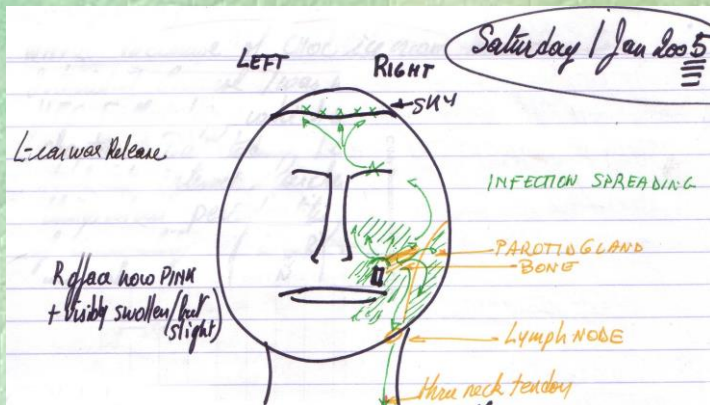 Saturday 1 Jan 2005
LEFT RIGHT
L-earwax Release
INFECTION SPREADING
PAROTID GLAND
BONE
R of face now PINK
+ visibly swollen (but
slight)
Lymph NODE
thru neck tendon